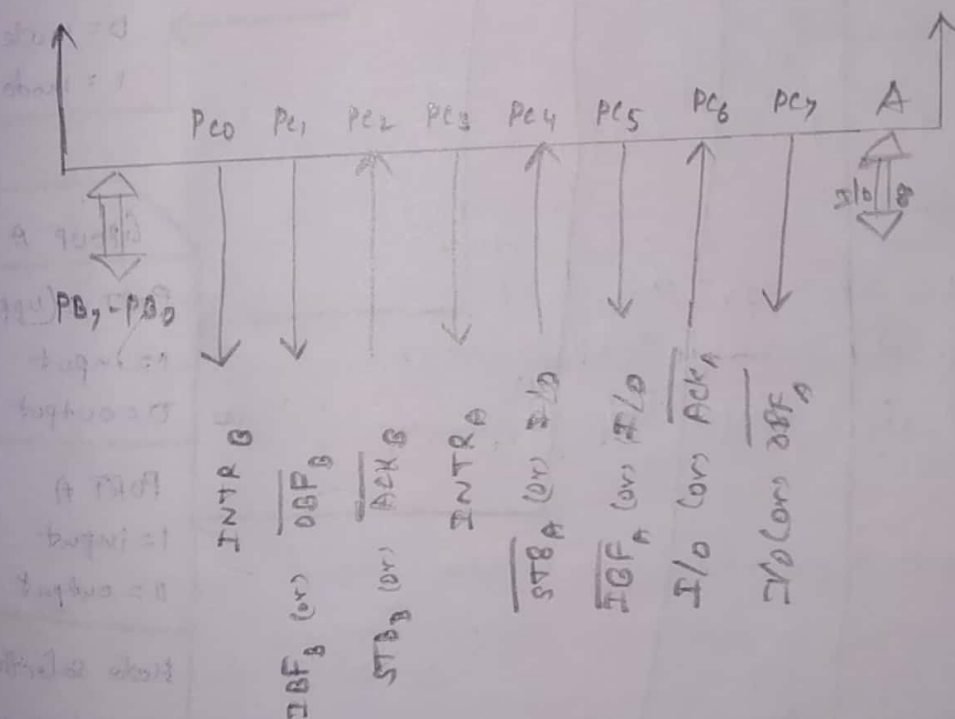 PC0 PC1 PC2 PC3 PC4 PC5 PC6 PC7 A
I/O 8
PB7-PB0
INTR B
IBF B (or) OBF B
STB B (or) ACK B
INTR A
STB A (or) I/O
IBF A (or) I/O
I/O (or) ACK A
I/O (or) OBF A